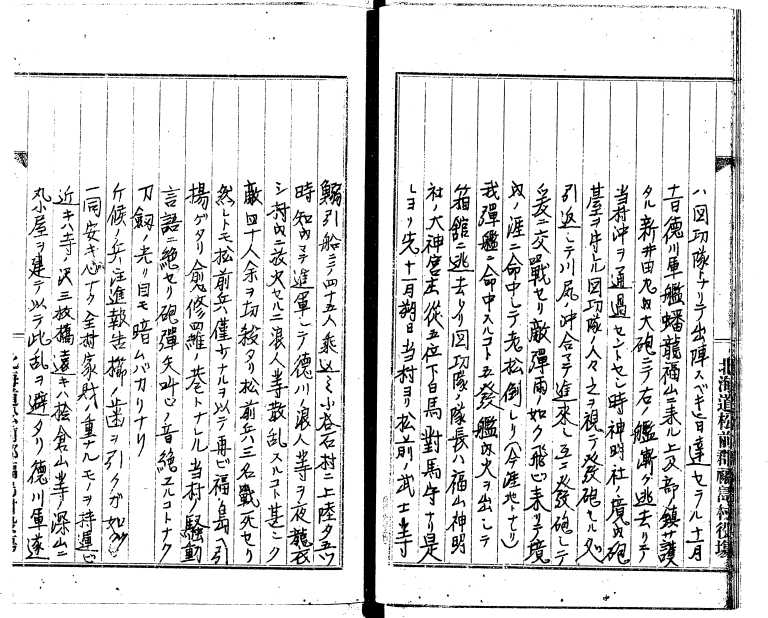 ハ図功隊トナリテ出陣スベキ旨達セラル十一月
十日徳川軍艦蟠龍福山ニ来ル上文部鎮サ護
タル新井田丸内大砲ニテ右ノ艦漸ク逃去リテ
当村沖ヲ通過セントセシ時神明社ノ境内砲
基ヲ守レル図功隊ノ人々之ヲ視テ發砲セル処
引返シテ川尻沖合マデ進来シ互ニ發砲シテ
爰ニ交戰セリ敵彈雨ノ如ク飛ビ来リテ境
内ノ涯ニ命中シテ老松倒レリ(今涯地トナリ)
我彈艦ニ命中スルコト五發艦内火ヲ出シテ
箱舘ニ逃去タリ図功隊ノ隊長ハ福山神明
社ノ大神宮主從五位下白鳥對馬守ナリ是
レヨリ先十一月朔日当村ヨリ松前ノ武士等
鰯引船ニテ四十五人乘込ミ小谷石村ニ上陸夕五ツ
時知内マデ進軍シテ徳川ノ浪人等ヲ夜襲
シ村内ニ放火セルニ浪人等散乱スルコト甚シク
敵四十人余ヲ切殺タリ松前兵三名戰死セリ
然レトモ松前兵僅少ナルヲ以テ再ビ福島ヘ引
揚ゲタリ愈修羅巷トナル当村ノ騒動
言語ニ絶セリ砲彈矢叫ビノ音絶エルコトナク
刀劔ノ光リ目モ暗ムバカリナリ
斥候ノ兵注進報告櫛ノ歯ヲ引クガ如シ
一同安キ心ナク全村家財ハ重ナルモノヲ持運ビ
近キハ寺ノ沢三枚橋遠キハ桧倉山等ノ深山ニ
丸小屋ヲ建テ以テ此乱ヲ避タリ徳川軍遂
北海道松前郡福島村役場